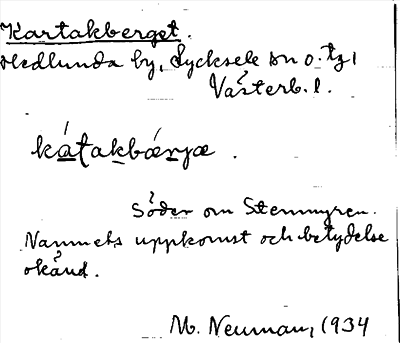 Kartakberget.
Hedlunda by, Lycksele sn o. tg,
Västerb. l.
kátakbærjæ.
Söder om Stenmyren.
Namnets uppkomst och betydelse
okänd.
M. Neuman, 1934